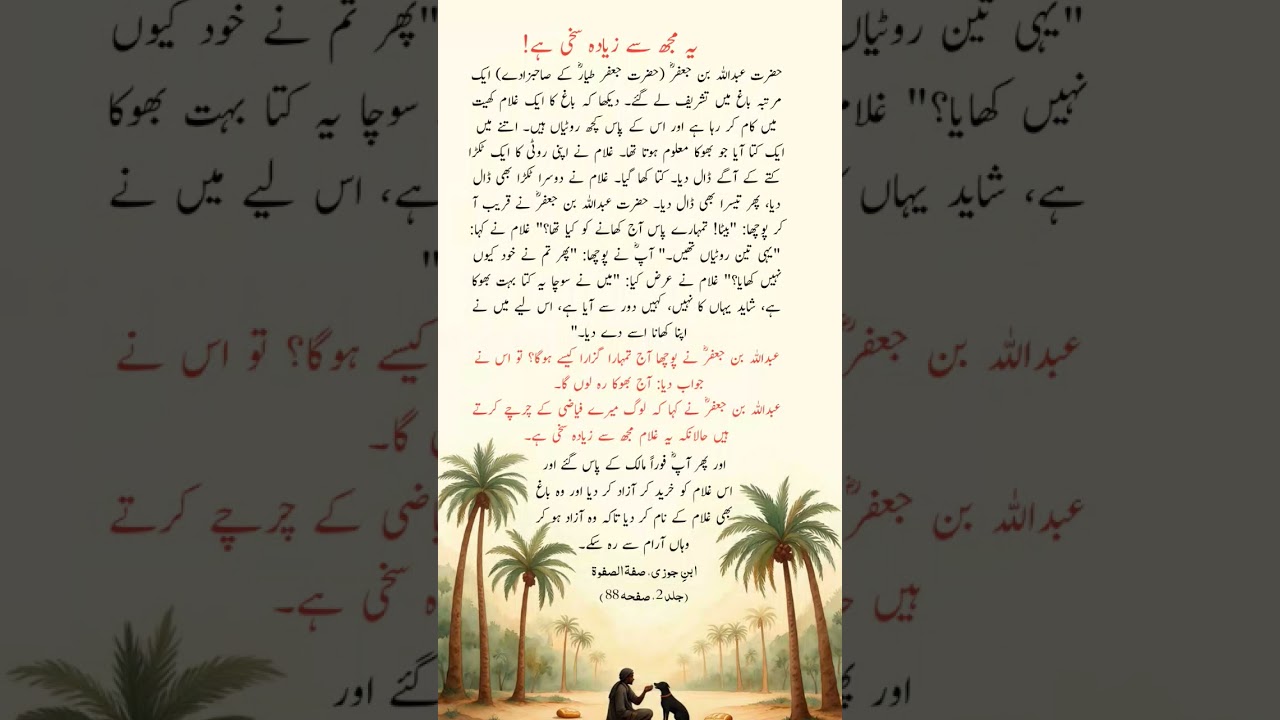 یہ مجھ سے زیادہ سخی ہے!
حضرت عبداللہ بن جعفرؓ (حضرت جعفر طیارؓ کے صاحبزادے) ایک
مرتبہ باغ میں تشریف لے گئے۔ دیکھا کہ باغ کا ایک غلام کھیت
میں کام کر رہا ہے اور اس کے پاس کچھ روٹیاں ہیں۔ اتنے میں
ایک کتا آیا جو بھوکا معلوم ہوتا تھا۔ غلام نے اپنی روٹی کا ایک ٹکڑا
کتے کے آگے ڈال دیا۔ کتا کھا گیا۔ غلام نے دوسرا ٹکڑا بھی ڈال
دیا، پھر تیسرا بھی ڈال دیا۔ حضرت عبداللہ بن جعفرؓ نے قریب آ
کر پوچھا: "بیٹا! تمہارے پاس آج کھانے کو کیا تھا؟" غلام نے کہا:
"یہی تین روٹیاں تھیں۔" آپؓ نے پوچھا: "پھر تم نے خود کیوں
نہیں کھایا؟" غلام نے عرض کیا: "میں نے سوچا یہ کتا بہت بھوکا
ہے، شاید یہاں کا نہیں، کہیں دور سے آیا ہے، اس لیے میں نے
اپنا کھانا اسے دے دیا۔"
عبداللہ بن جعفرؓ نے پوچھا آج تمہارا گزارا کیسے ہوگا؟ تو اس نے
جواب دیا: آج بھوکا رہ لوں گا۔
عبداللہ بن جعفرؓ نے کہا کہ لوگ میرے فیاضی کے چرچے کرتے
ہیں حالانکہ یہ غلام مجھ سے زیادہ سخی ہے۔
اور پھر آپؓ فوراً مالک کے پاس گئے اور
اس غلام کو خرید کر آزاد کر دیا اور وہ باغ
بھی غلام کے نام کر دیا تاکہ وہ آزاد ہو کر
وہاں آرام سے رہ سکے۔
ابنِ جوزی، صفة الصفوة
(جلد 2، صفحہ 88)
"یہی تین روٹیاں
نہیں کھایا؟" غلام
ہے، شاید یہاں
عبداللہ بن جعفرؓ
عبداللہ بن جعفرؓ
ہیں
"پھر تم نے خود کیوں
سوچا یہ کتا بہت بھوکا
ہے، اس لیے میں نے
"
کیسے ہوگا؟ تو اس نے
گا۔
فیاضی کے چرچے کرتے
سخی ہے۔
گئے اور